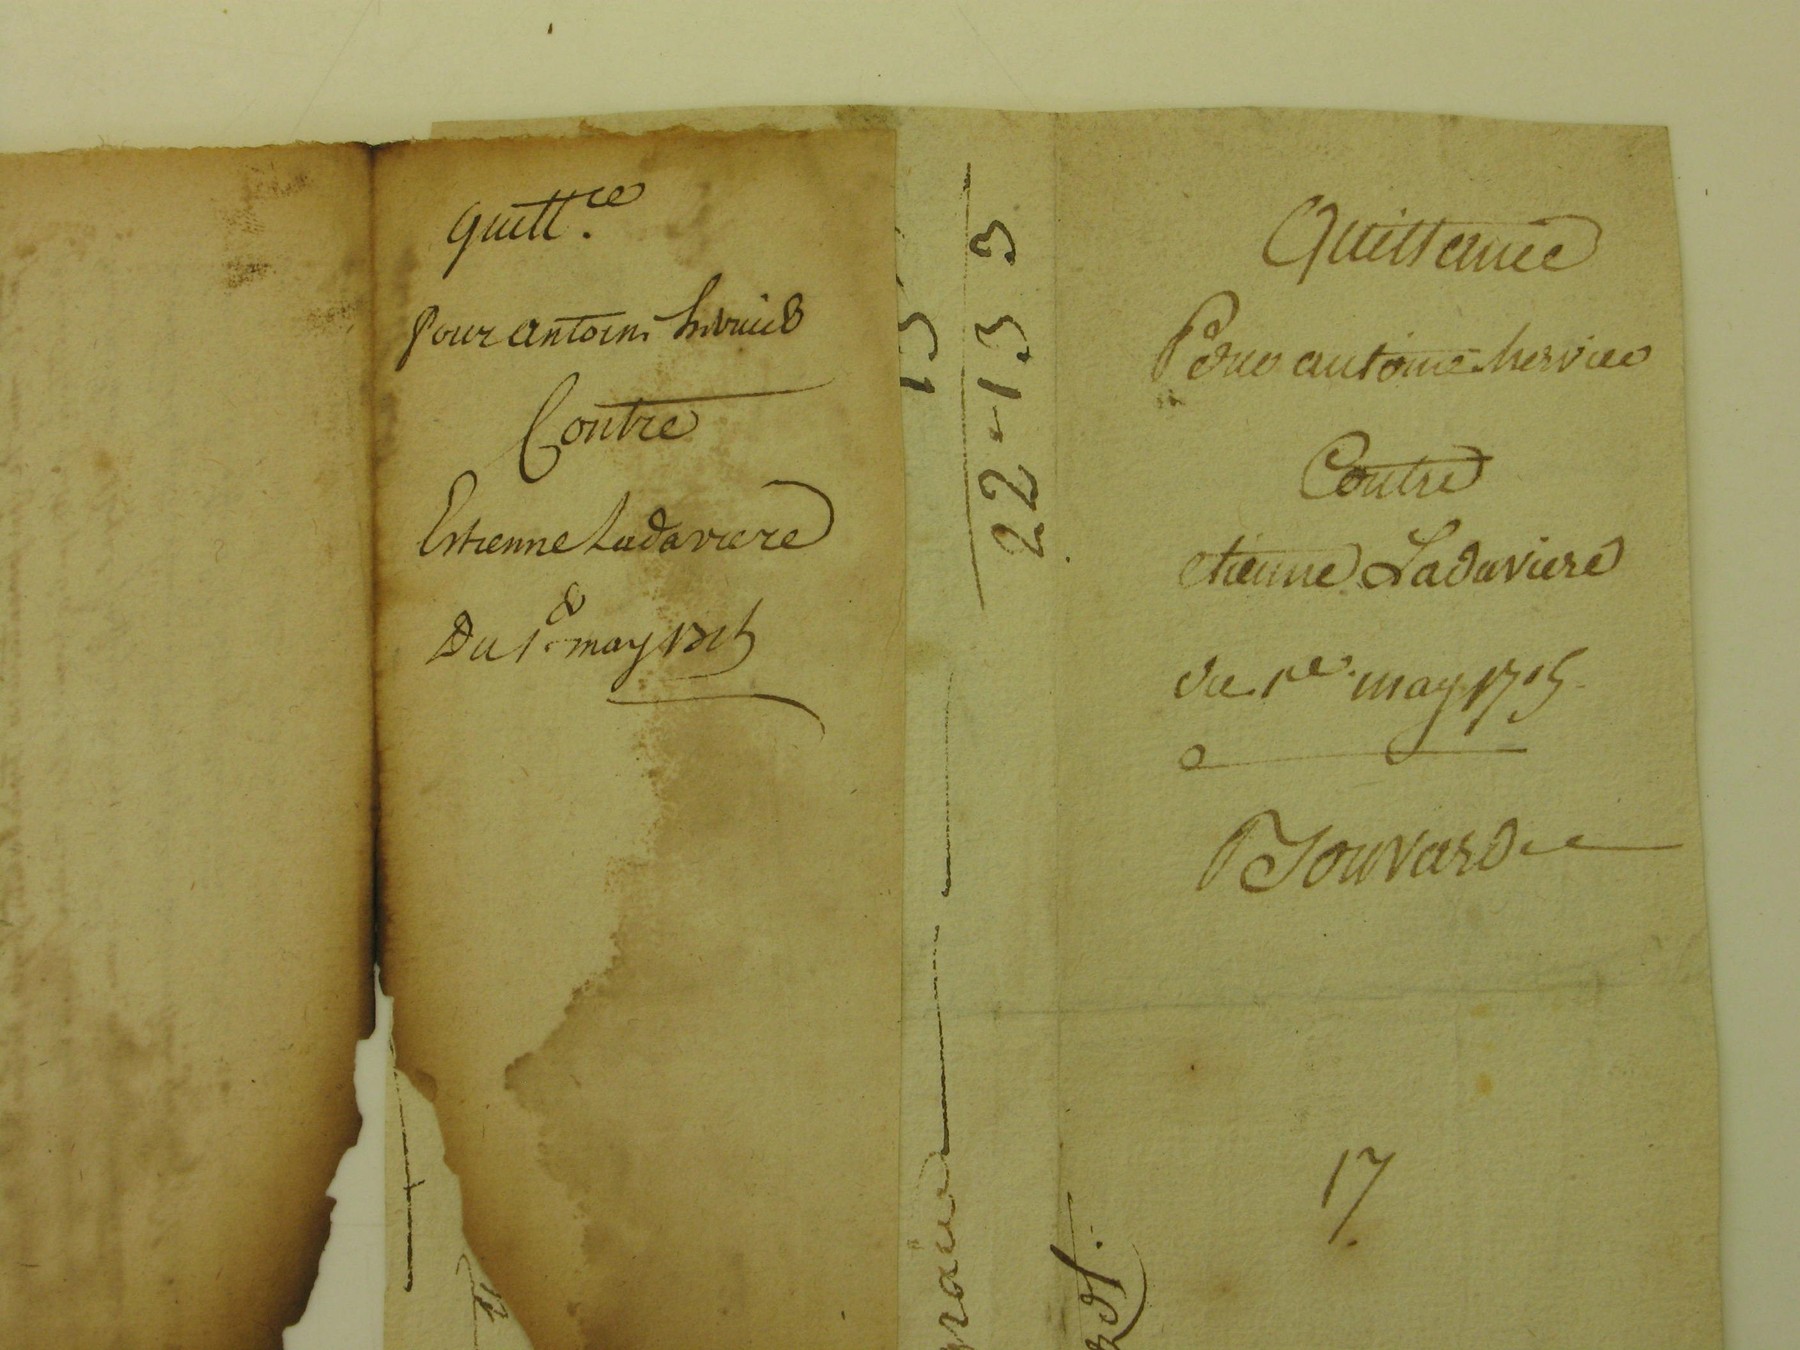 quitt.ce
pour antoine hervier
Contre
Estienne Ladaviere
Du 1er may 1715
22-13 3
Quittance
Pour antoine hervier
Contre
etienne Ladaviere
du 1er may 1715
Bouvard
17